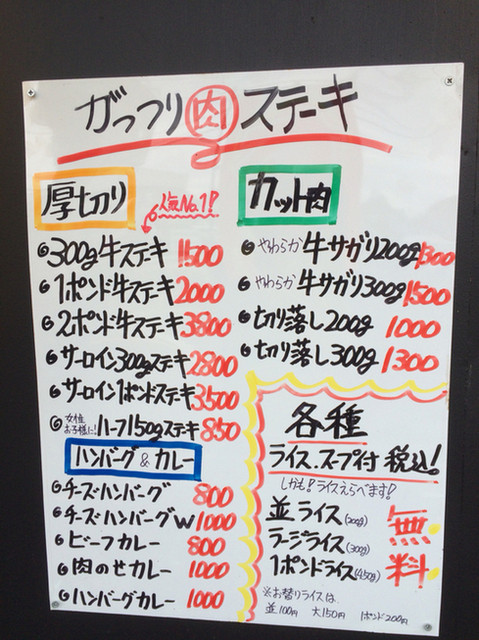 がっつり肉ステーキ
厚切り
人気No.1!
300g牛ステキ 1500
1ポンド牛ステキ 2000
2ポンド牛ステキ 3800
サーロイン300gステキ 2800
サーロイン1ポンドステキ 3500
女性お子様に! ハーフ150gステキ 850
ハンバーグ&カレー
チーズハンバーグ 800
チーズハンバーグW 1000
ビーフカレー 800
肉のせカレー 1000
ハンバーグカレー 1000
カット肉
やわらか 牛サガリ200g 1300
やわらか 牛サガリ300g 1500
切り落し200g 1000
切り落し300g 1300
各種
ライス.スープ付 税込!
しかも!ライスえらべます!
並ライス(200g)
ラージライス(300g)
1ポンドライス(450g)
無料
※お替りライスは
並100円 大150円 1ポンド200円